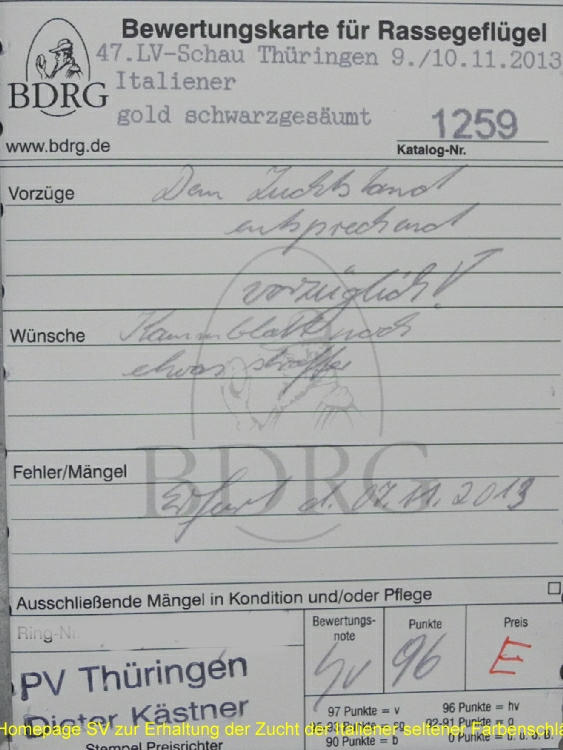 Bewertungskarte für Rassegeflügel
47.LV-Schau Thüringen 9./10.11.2013
Italiener
BDRG
gold schwarzgesäumt
1259
www.bdrg.de
Katalog-Nr.
Vorzüge
Dem Zuchtstand
entsprechend
vorzüglich!
Wünsche
Kammblatt noch
etwas straffer
BDRG
Fehler/Mängel
Erfurt d. 07.11.2013
Ausschließende Mängel in Kondition und/oder Pflege
Ring-Nr.
Bewertungs-
note
Punkte
Preis
hv
96
E
PV Thüringen
Dieter Kästner
Stempel Preisrichter
97 Punkte = v
96 Punkte = hv
92-91 Punkte = g
90 Punkte = b
0 Punkte = u.
Homepage SV zur Erhaltung der Zucht der Italiener seltener Farbenschlä